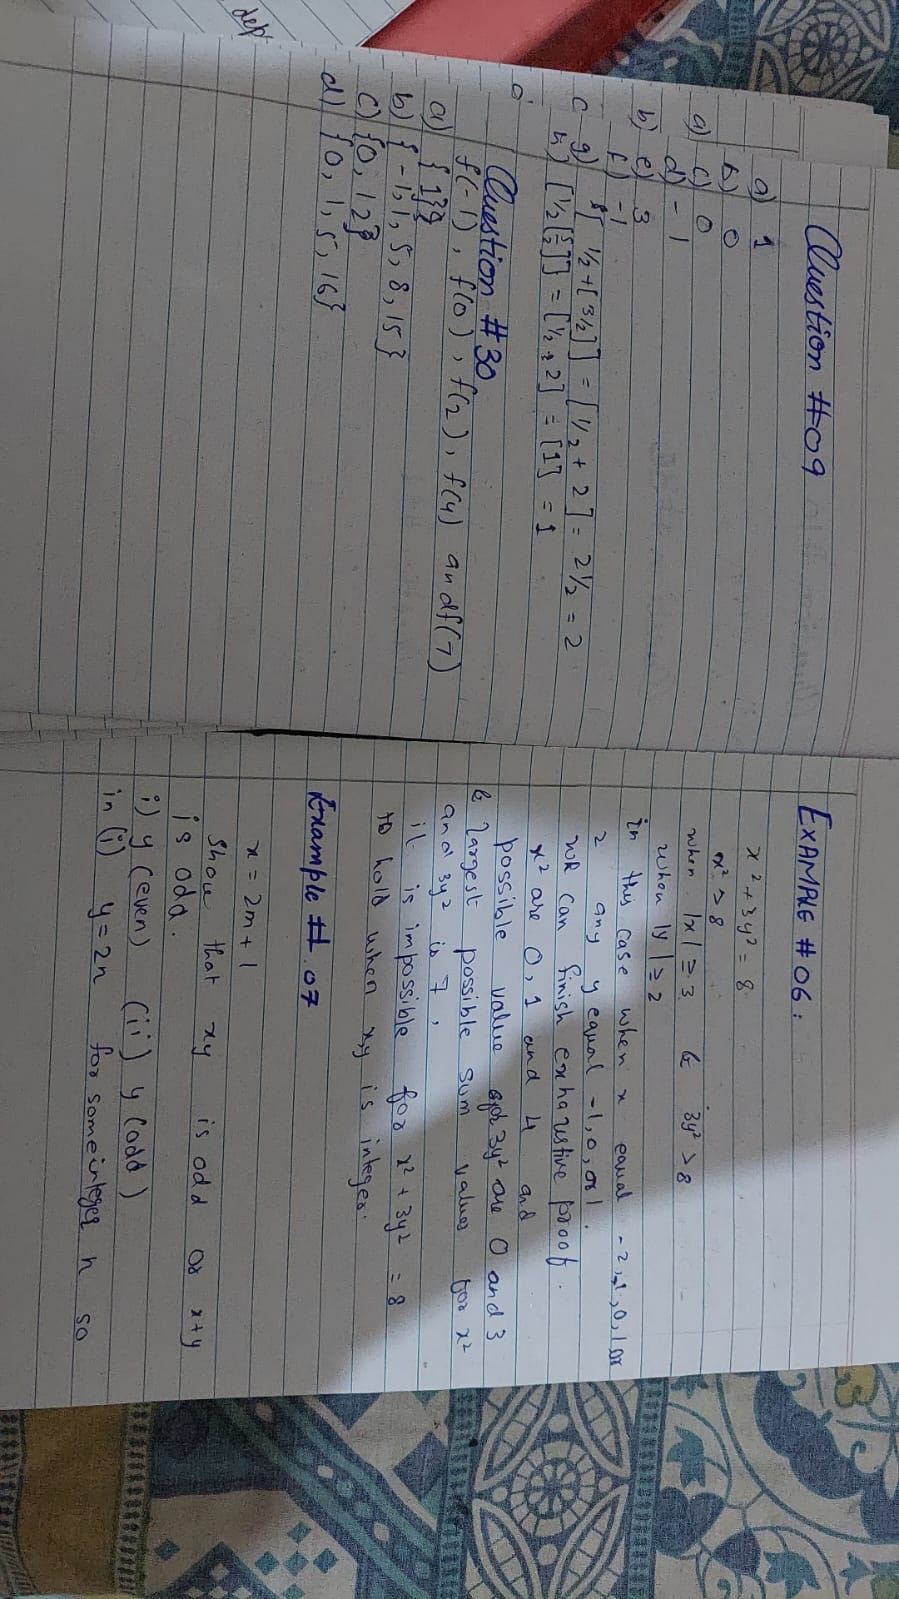 Question #09
a) 1
b) 0
a) c) 0
d) - 1
b) e) 3
f) -1
c g) [ 1/2 + [ 3/2 ] ] = [ 1/2 + 2 ] = 2 1/2 = 2
h) [ 1/2 [ 5/2 ] ] = [ 1/2 * 2 ] = [1] = 1
d
Question #30
f(-1), f(0), f(2), f(4) and f(7)
a) {1}}
b) { -1, 1, 5, 8, 15 }
c) {0, 12}
d) {0, 1, 5, 16}
dep
EXAMPLE # 06 :
x² + 3y² = 8
x² > 8
when |x| ≥ 3 & 3y² > 8
when |y| ≥ 2
in this case when x equal -2, -1, 0, 1 or
2 any y equal -1, 0, or 1.
we can finish exhaustive proof.
x² are 0, 1 and 4 and
possible value for 3y² are 0 and 3
& largest possible sum values for x²
and 3y² is 7,
it is impossible for x² + 3y² = 8
to hold when x,y is integer.
Example # 07
x = 2m + 1
Show that xy is odd or x+y
is odd.
i) y (even) (ii) y (odd)
in (i) y = 2n for some integer n so